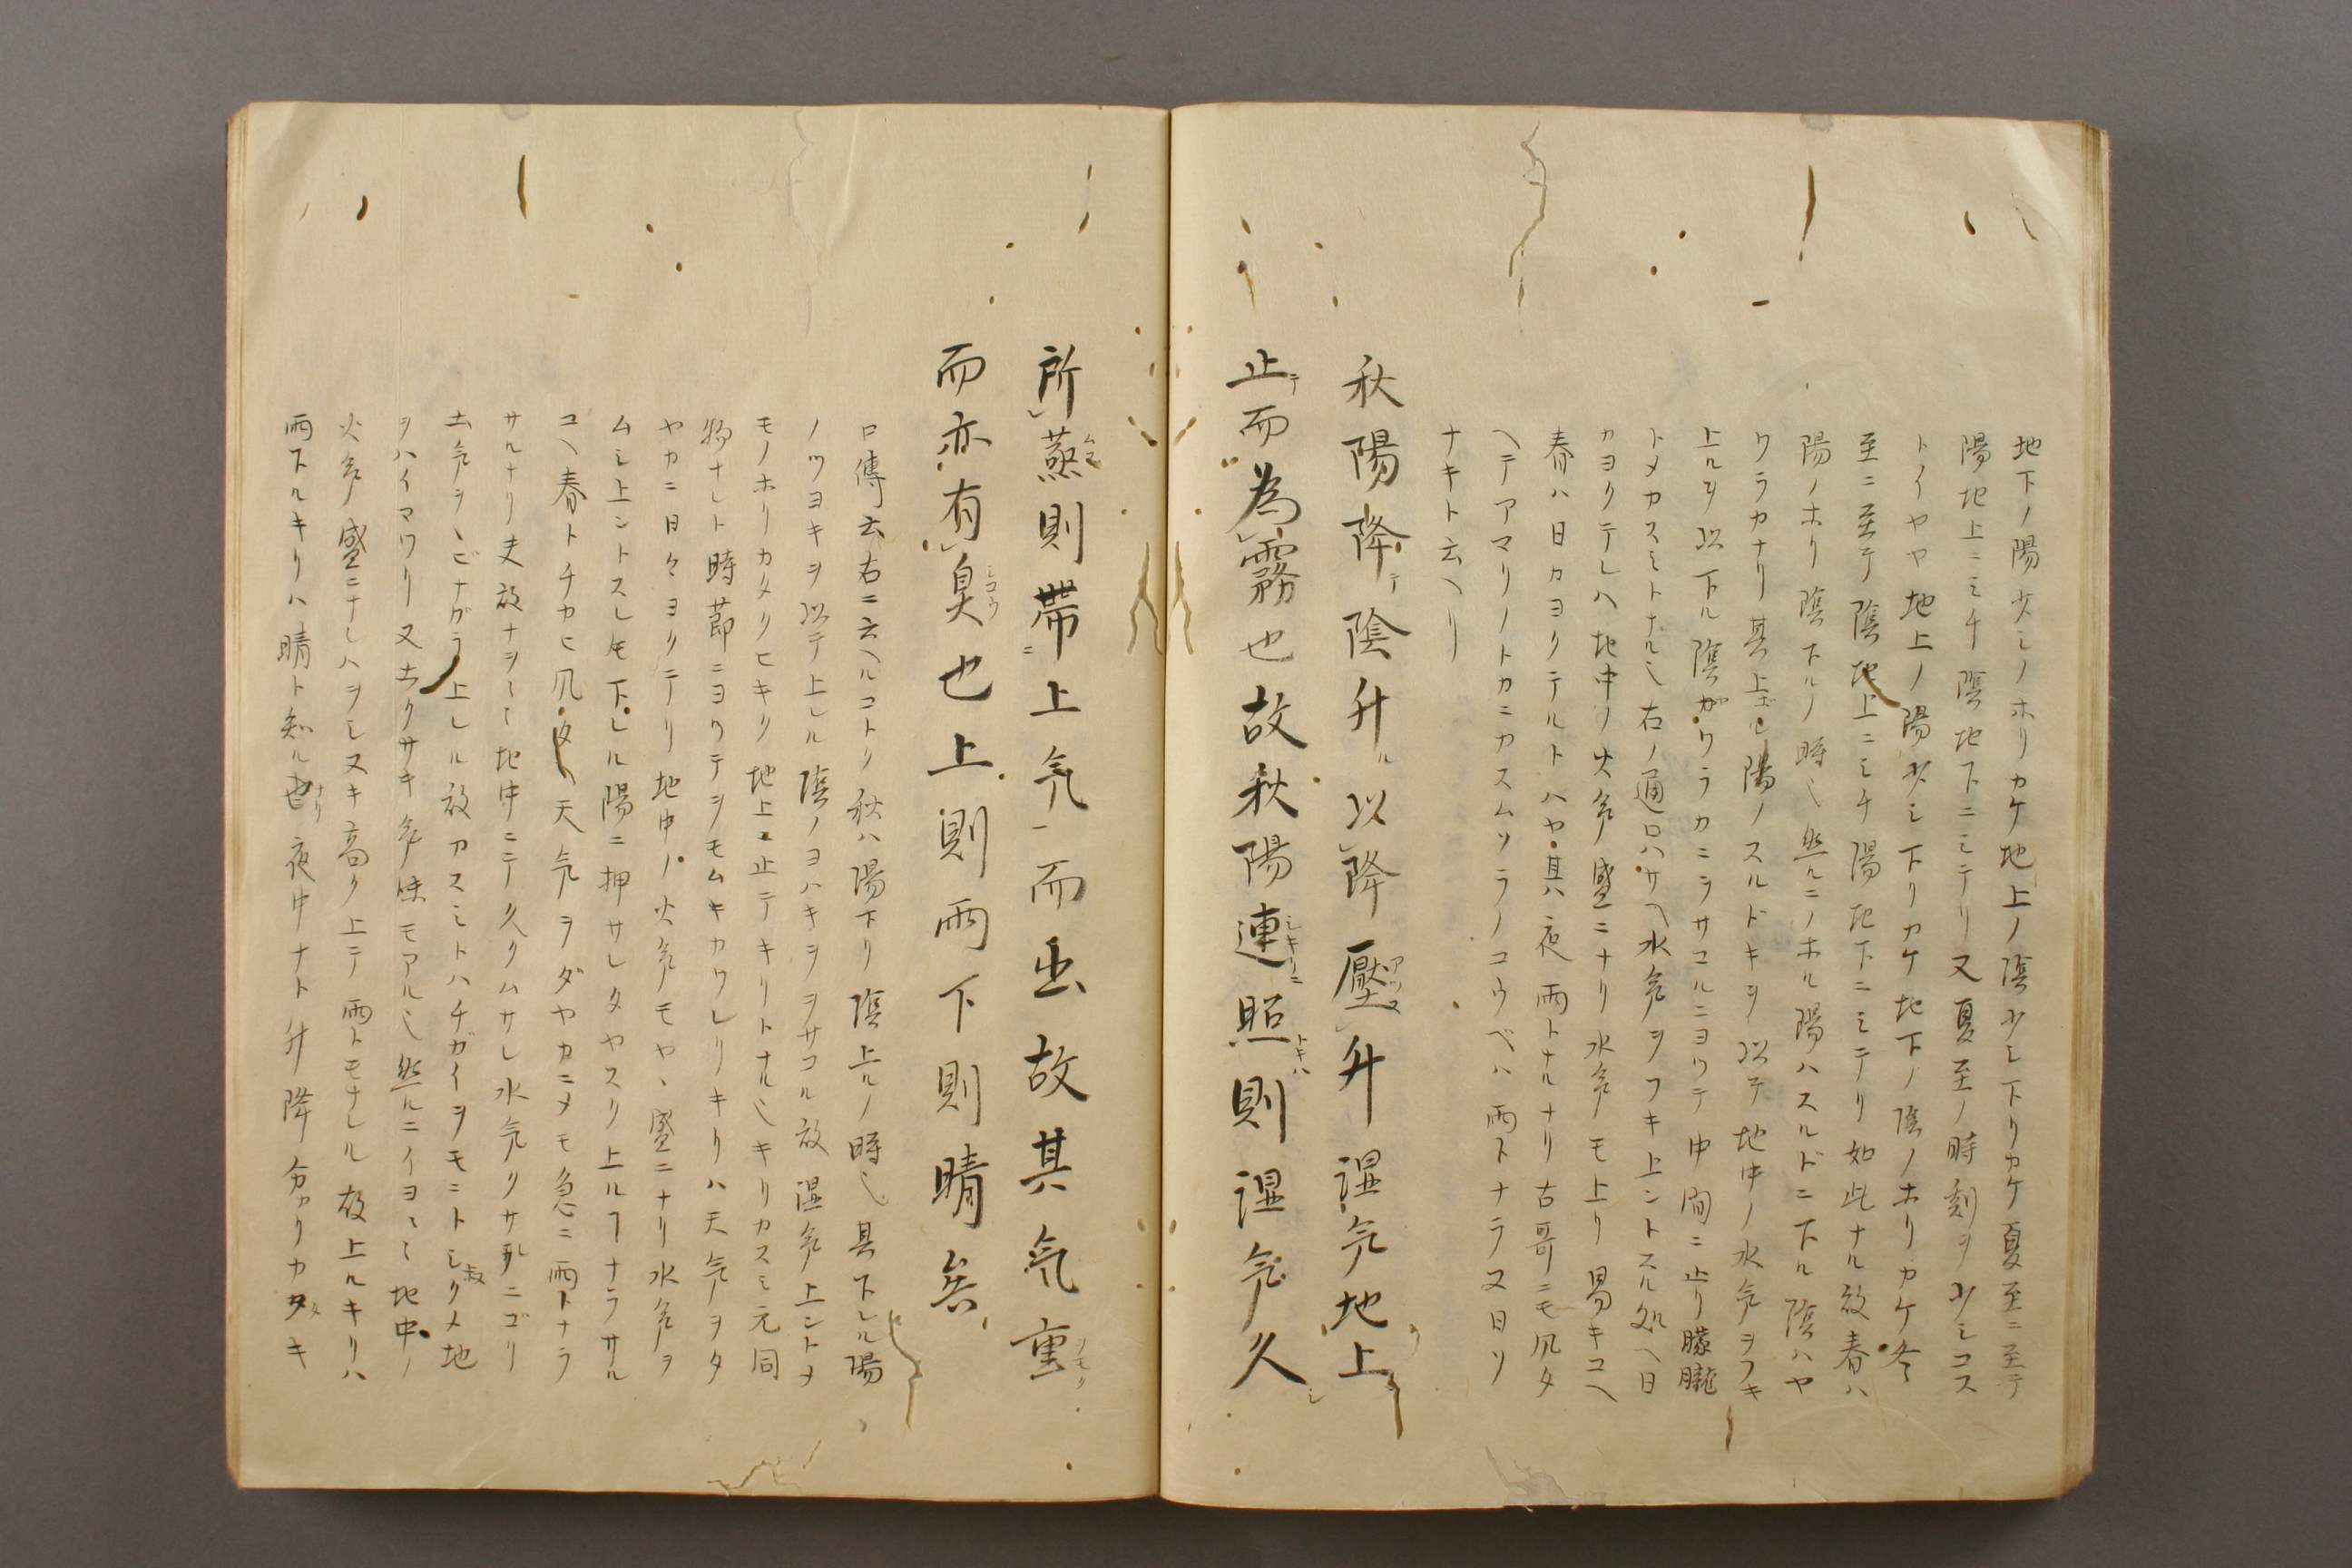 地下ノ陽少シノホリカケ地上ノ陰少シ下リカケ夏至ニ至テ
陽地上ニミチ陰地下ニミテリ又夏至ノ時刻ヲ少シコス
トイヤヤ地上ノ陽少シ下リカケ地下ノ陰ノホリカケ冬
至ニ至テ陰地上ニミチ陽地下ニミテリ如此ナル故春ハ
陽ノホリ陰下ルノ時也然ルニノホル陽ハスルドニ下ル陰ハヤ
ワラカナリ其上ル陽ノスルドキヲ以テ地中ノ水気ヲフキ
上ルヲ以下ル陰ガワラカニヲサコルニヨツテ中間ニ止リ朦朧
トメカスミトナル也右ノ通只ハサヘ水気ヲフキ上ントスル処ヘ日
カヨクテレハ地中ノ火気盛ニナリ水気モ上リ易キユヘ
春ハ日カヨクテルトハヤ其ハ夜雨トナルナリ古哥ニモ風タ
ヘテアマリノトカニカスムソラノコウベハ雨トナラヌ日ソ
ナキト云ヘリ
秋陽降テ陰升ル以降壓アツヌ升湿気地上ウ
止テ而為霧也故秋陽連シキリニ照トキハ則湿気久シ
所蒸ムサ則帯ニ上気一而出故其気重ノモク
而亦有臭シコウ也上則雨下則晴矣
口傳云右ニ云ヘルコトク秋ハ陽下リ陰上ルノ時也其下レル陽
ノツヨキヲ以テ上レル陰ノヨハキヲヲサコル故湿気上ントメ
モノホリカタクヒキク地上ニ止テキリトナル也キリカスミ元同
物ナレト時節ニヨツテヲモムキカワレリキリハ天気ヲタ
ヤカニ日々ヨクテリ地中ノ火気モヤヽ盛ニナリ水気ヲ
ムシ上ントスレ𪜈下レル陽ニ押サレタヤスク上ルフナラサル
ユヘ春トチカヒ風タヘ天気ヲダヤカニメモ急ニ雨トナラ
サルナリ夫故ナヲ〻地中ニテ久クムサレ水気クサ乱ニゴリ
土気ヲヽビナガラ上レル故カスミトハチガイヲモニトシクメ地
ヲハイマワリ又土クサキ気味モアル也然ルニイヨ〻地中ノ
火気盛ニナレハヲシヌキ高ク上テ雨トモナレル故上ルキリハ
雨下ルキリハ晴ト知ル也ナリ夜中ナト升降分カリカタキ